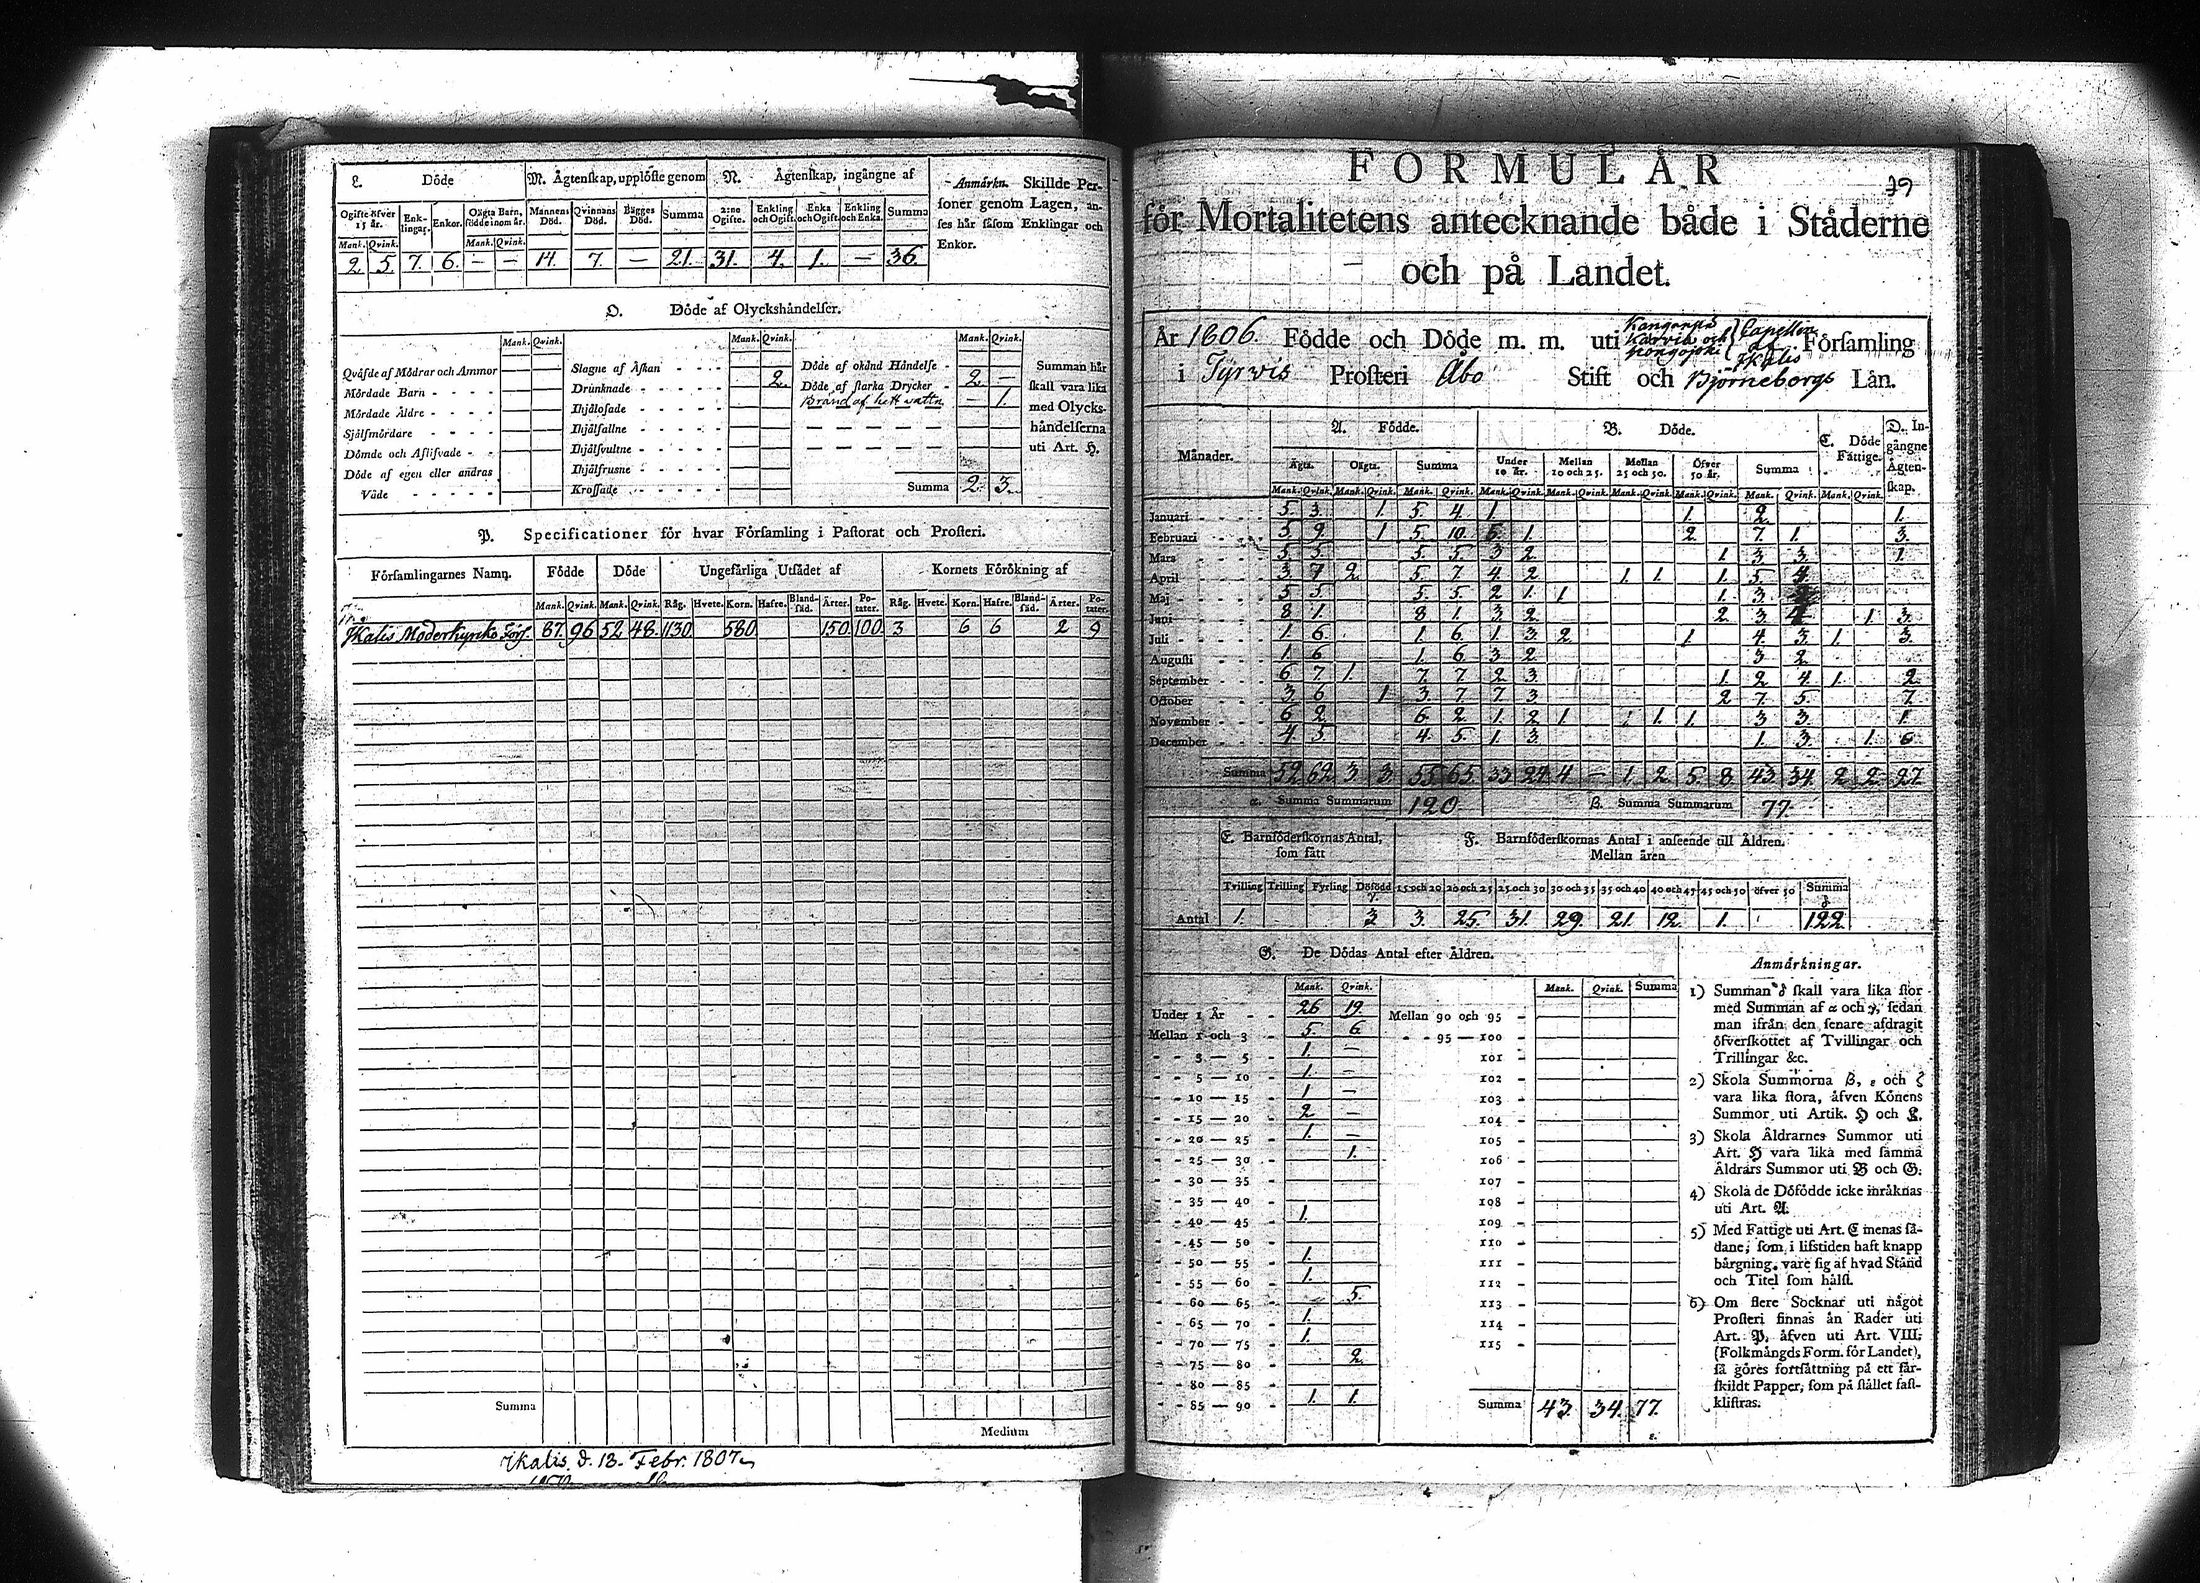 L. Döde
M. Ågtenskap, upplöste genom
N. Ågtenskap, ingångne af
Anmårkn. Skillde Personer
soner genom Lagen, anses
ses hår såsom Enklingar och
Enkor.
Ogifte öfver 15 år. Enklingar. Enkor. Oågta Barn, födde inom år. Mannens Död. Qvinnans Död. Bågges Död. Summa 2:ne Ogifte. Enkling och Ogift. Enka och Ogift. Enkling och Enka. Summa
Mank. Qvink. Mank. Qvink.
2 5. 7. 6. — — 14. 7. — 21. 31. 4. 1. — 36.
O. Döde af Olyckshåndelser.
Mank. Qvink. Mank. Qvink. Mank. Qvink.
Qvåfde af Mödrar och Ammor
Mördade Barn
Mördade Åldre
Sjålfmördare
Dömde och Aflifvade
Döde af egen eller andras
Våde
Slagne af Åskan
Drunknade 2.
Ihjålosade
Ihjålfallne
Ihjålsvultne
Ihjålfrusne
Krossade
Döde af okånd Håndelse 2. —
Döde af starka Drycker
Bränd af hett vattn — 1.
Summa 2. 3.
Summan hår
skall vara lika
med Olycks-
håndelserna
uti Art. H.
P. Specificationer för hvar Församling i Pastorat och Prosteri.
Församlingarnes Namn. Födde Döde Ungefårliga Utsådet af Kornets Förökning af
Mank. Qvink. Mank. Qvink. Råg. Hvete. Korn. Hafre. Blandsåd. Årter. Potater. Råg. Hvete. Korn. Hafre. Blandsåd. Årter. Potater.
Ikalis Moderkyrko Förs. 87. 96 52 48. 1130. 580. 150. 100. 3 6 6 2 9
Summa
Medium
Ikalis. d. 13. Febr. 1807.
79
FORMULÅR
för Mortalitetens antecknande både i Ståderne
och på Landet.
År 1806. Födde och Döde m. m. uti Kangaspä Karvia och Hongojoki Capeller af Ikalis Församling
i Tyrvis Prosteri Åbo Stift och Björneborgs Lån.
Månader. A. Födde. B. Döde. C. Döde Fattige. D. Ingångne Ågtenskap.
Ågta. Oågta. Summa Under 10 år. Mellan 10 och 25. Mellan 25 och 50. Öfver 50 år. Summa
Mank. Qvink. Mank. Qvink. Mank. Qvink. Mank. Qvink. Mank. Qvink. Mank. Qvink. Mank. Qvink. Mank. Qvink. Mank. Qvink.
Januari 5. 3. 1. 5. 4. 1. 1. 2. 1.
Februari 5 9. 1 5. 10. 5. 1. 2. 7. 1. 3.
Mars 5. 5. 5. 5. 3 2. 1 3. 3. 1.
April 3. 7 2. 5. 7. 4. 2. 1. 1. 1. 5. 4.
Maj 5 5. 5. 5. 2 1. 1 1. 3.
Juni 8 1. 8 1. 3. 2. 2. 3. 4 1. 3.
Juli 1 6. 1. 6. 1. 3. 2. 1. 4. 3. 1. 3.
Augusti 1 6 1. 6. 3 2. 3 2.
September 6 7. 1. 7. 7 2 3. 1. 2 4. 1. 2.
October 3. 6. 1 3. 7 7 3 2 7. 5. 7.
November 6 2 6. 2. 1. 2. 1. 1. 1. 3 3. 1.
December 4 5. 4. 5. 1. 3. 1. 3. 1. 6
Summa 52 62 3 3 55. 65. 33 24. 4 — 1. 2. 5. 8. 43. 34. 2 2. 27.
α. Summa Summarum 120. β. Summa Summarum 77.
E. Barnföderskornas Antal,
som fått
F. Barnföderskornas Antal i anseende till Åldren.
Mellan åren
Tvilling Trilling Fyrling Döfödd γ. 15 och 20 20 och 25 25 och 30 30 och 35 35 och 40 40 och 45 45 och 50 öfver 50 Summa δ
Antal 1. 3 3. 25. 31. 29. 21. 12. 1. 122.
G. De Dödas Antal efter Åldren.
Mank. Qvink. Mank. Qvink. Summa
Under 1 År 26 19. Mellan 90 och 95
Mellan 1 och 3 5. 6 95 — 100
3 — 5 1. — 101
5 — 10 1. — 102
10 — 15 1 — 103
15 — 20 2 — 104
20 — 25 1. — 105
25 — 30 1. 106
30 — 35 107
35 — 40 108
40 — 45 1. 109
45 — 50 110
50 — 55 1. 111
55 — 60 1. 112
60 — 65 5. 113
65 — 70 1. 114
70 — 75 1. 115
75 — 80 2.
80 — 85
85 — 90 1. 1. Summa 43. 34. 77.
ε.
Anmårkningar.
1) Summan δ skall vara lika stor
med Summan af α och γ, sedan
man ifrån den senare afdragit
öfverskottet af Tvillingar och
Trillingar &c.
2) Skola Summorna β, ε och ζ
vara lika stora, åfven Könens
Summor uti Artik. H och L.
3) Skola Åldrarnes Summor uti
Art. H vara lika med samma
Åldrars Summor uti B och G.
4) Skola de Döfödde icke inråknas
uti Art. A.
5) Med Fattige uti Art. C menas så-
dane, som i lifstiden haft knapp
bårgning, vare sig af hvad Stånd
och Titel som hålst.
6) Om flere Socknar uti något
Prosteri finnas ån Rader uti
Art. P, åfven uti Art. VIII;
(Folkmångds Form. för Landet),
så göres fortsåttning på ett sår-
skildt Papper, som på stållet fast-
klistras.